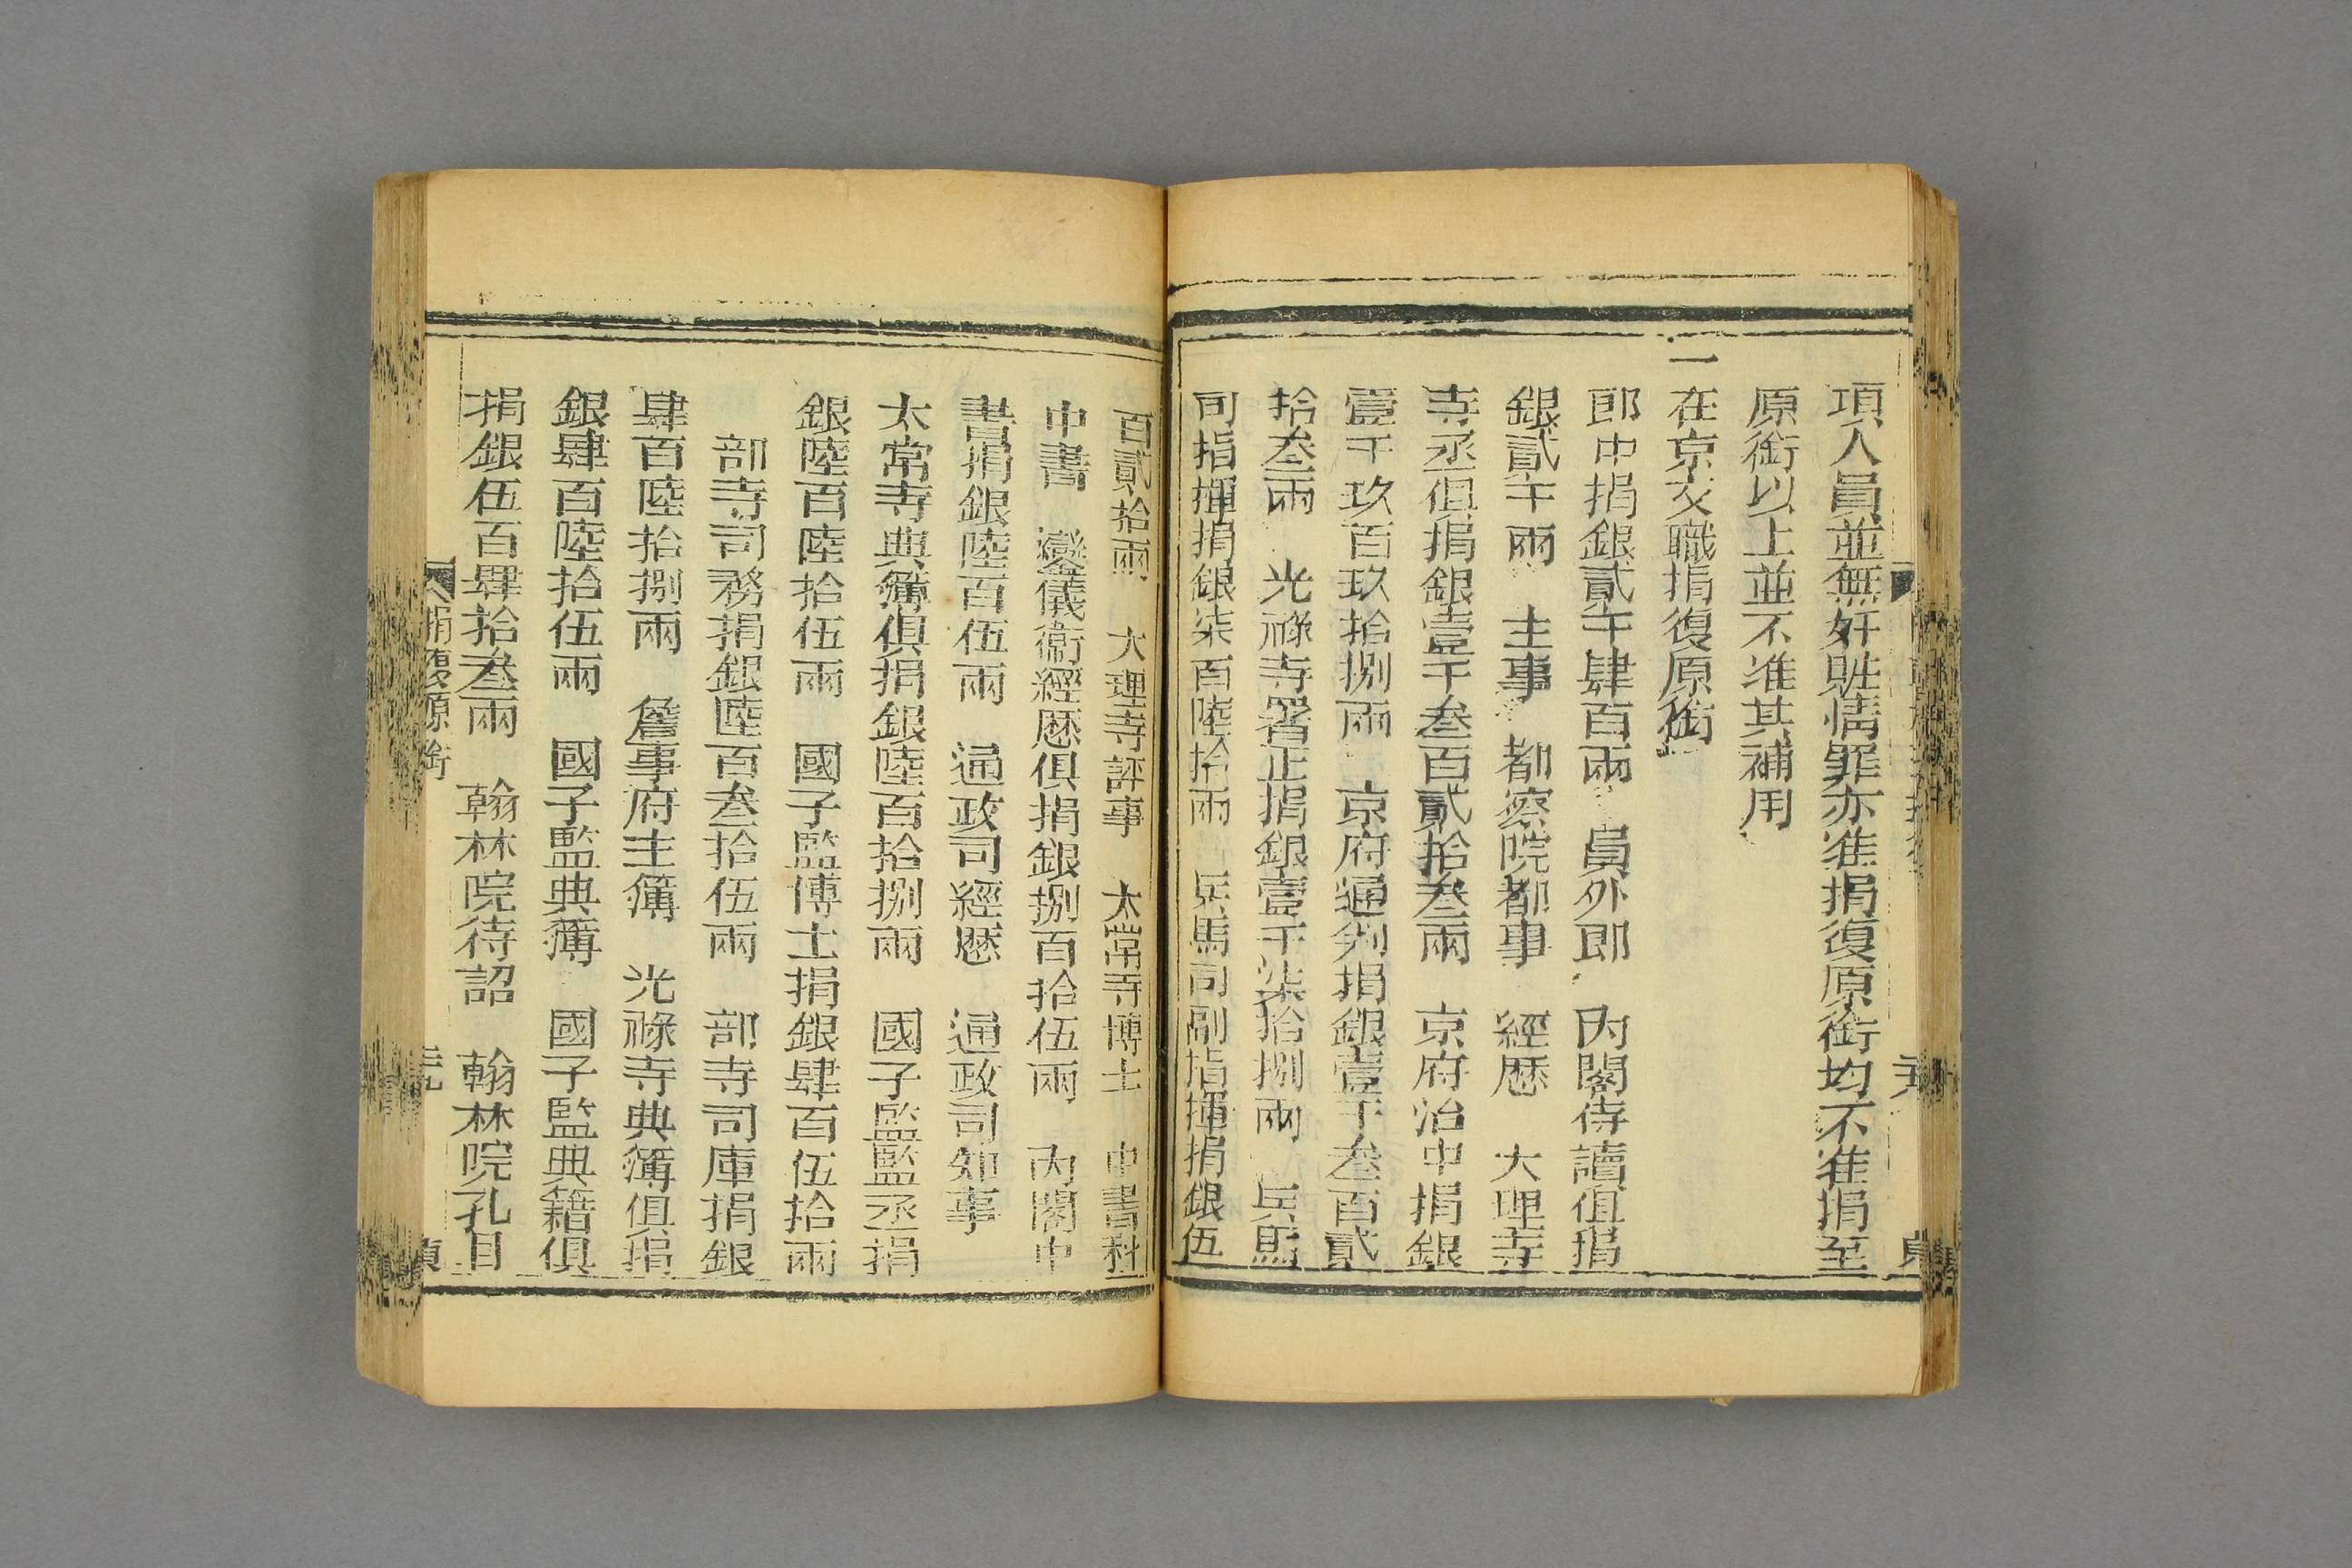 項人員並無奸賍情罪亦准捐復原銜均不准捐至
原銜以上並不准其補用
一在京文職捐復原銜
郎中捐銀貳千肆百兩　員外郎　內閣侍讀俱捐
銀貳千兩　主事　都察院都事　經歷　大理寺
寺丞俱捐銀壹千叁百貳拾叁兩　京府治中捐銀
壹千玖百玖拾捌兩　京府通判捐銀壹千叁百貳
拾叁兩　光祿寺署正捐銀壹千柒拾捌兩　兵馬
司指揮捐銀柒百陸拾兩　兵馬司副指揮捐銀伍
百貳拾兩　大理寺評事　太常寺博士　中書科
中書　鑾儀衛經歷俱捐銀捌百拾伍兩　內閣中
書捐銀陸百伍兩　通政司經歷　通政司知事
太常寺典簿俱捐銀陸百拾捌兩　國子監監丞捐
銀陸百陸拾伍兩　國子監博士捐銀肆百伍拾兩
部寺司務捐銀陸百叁拾伍兩　部寺司庫捐銀
肆百陸拾捌兩　詹事府主簿　光祿寺典簿俱捐
銀肆百陸拾伍兩　國子監典簿　國子監典籍俱
捐銀伍百肆拾叁兩　翰林院待詔　翰林院孔目
捐復原銜